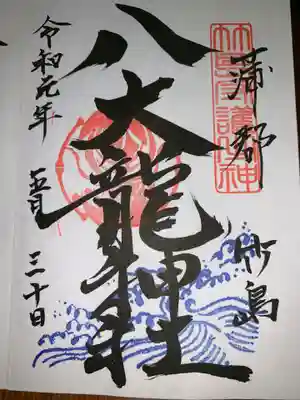 竹島守護神
蒲郡 竹島
八大龍神社
令和元年 五月 三十日